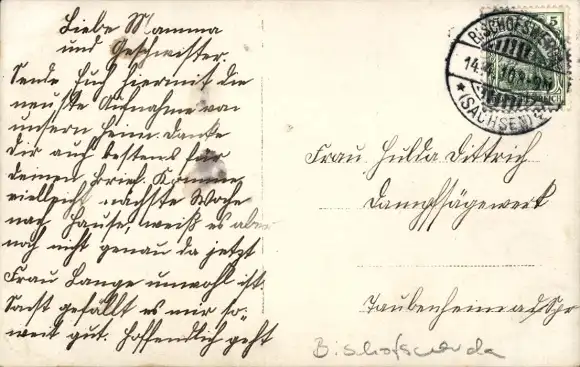 Liebe Mamma
und Geschwister
Sende Euch hiermit die
neuste Aufnahme von
unsern Heim. Danke
Dir auch bestens für
deinen Brief. Komme
vielleicht nächste Woche
nach Hause, weiß es aber
noch nicht genau da jetzt
Frau Lange unwohl ist.
Sonst gefällt es mir so-
weit gut. Hoffendlich geht
BISCHOFSWERDA
14.
10.8-9N
*(SACHSEN)
5
Frau Hulda Dittrich
Dampfsägewerk
Taubenheim a/d Spr
Bischofswerda